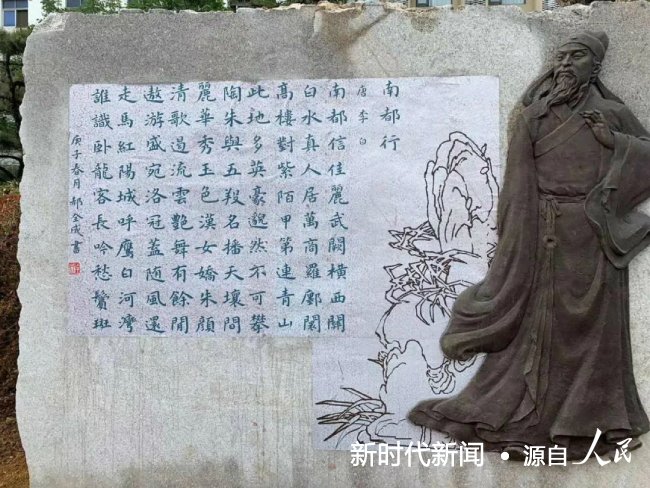 南都行
唐 李白
南都信佳麗武闕橫西關
白水真人居萬商羅鄽闤
高樓對紫陌甲第連青山
此地多英豪邈然不可攀
陶朱與五羖名播天壤間
麗華秀玉色漢女嬌朱顏
清歌遏流雲艷舞有餘閒
遨游盛宛洛冠蓋随風還
走馬紅陽城呼鷹白河灣
誰識卧龍客長吟愁鬢斑
庚子春月郝全成書
新时代新闻 • 源自人民